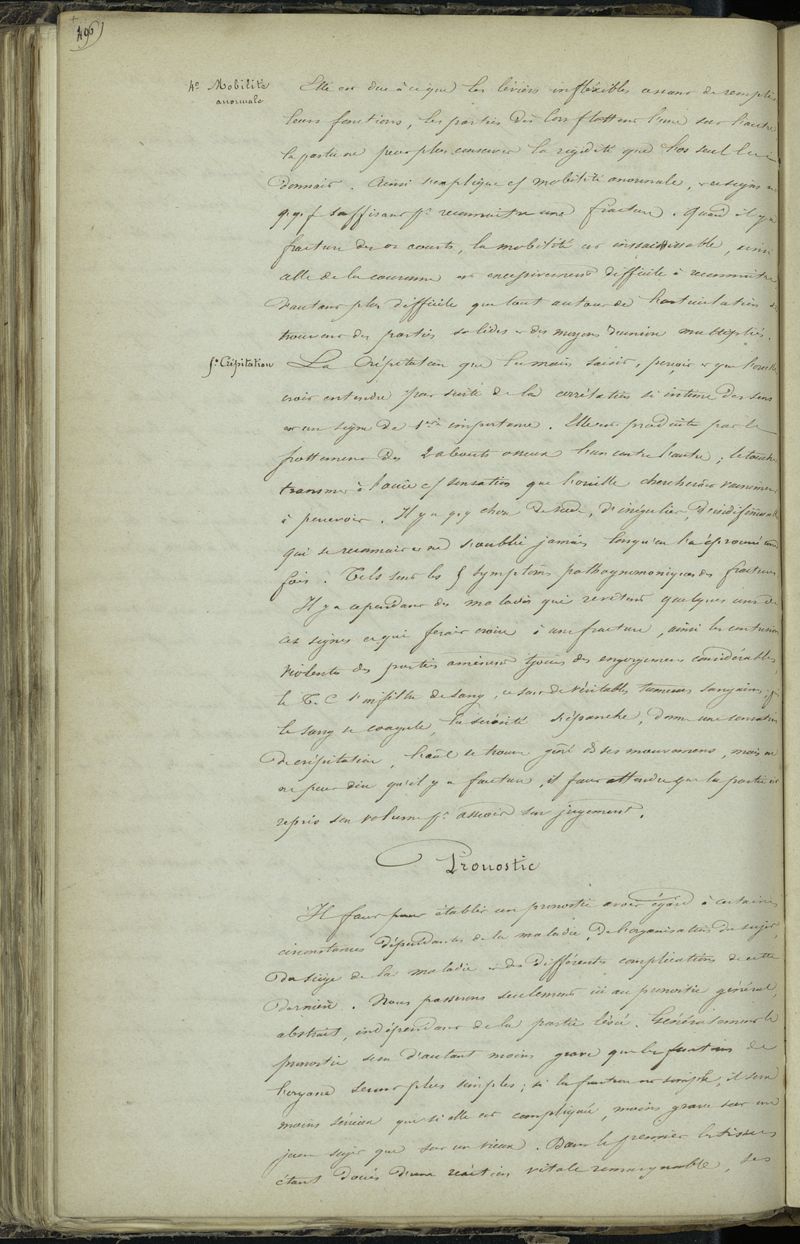 496
4º Mobilité anormale
Elle est due à ce que les léviers infléxibles cessant de remplir
leurs fonctions, les parties dès lors flottent l'une sur l'autre
la partie ne peut plus conserver la rigidité que l'os seul lui
donnait. Ainsi s'explique cf mobilité anormale, ce signe
qq f suffisant pr reconnaitre une fracture. Quand il y a
fracture des os courts, la mobilité est insaisissable, ainsi
celle de la couronne est excessivement difficile à reconnaitre
d'autant plus difficile que tout autour de l'articulation se
trouvent des parties solides et des moyens d'union multipliés.
5º Crépitation
La Crépitation que la main saisit, perçoit et que l'oreille
croit entendre par suite de la corrélation si intime des sens
est un signe de 1ère importance. Elle est produite par le
frottement des 2 abouts osseux l'un contre l'autre ; le toucher
transmet à l'ouïe cf sensation que l'oreille chercherait vainement
à percevoir. Il y a qq chose de rude, d'irrégulier, d'indéfinissable
qui se reconnait et ne s'oublie jamais lorsqu'on l'a éprouvé une
fois. Tels sont les 5 symptômes pathognomoniques des fractures
Il y a cependant des maladies qui revêtent quelques uns de
ces signes ce qui ferait croire à une fracture, ainsi les contusions
violentes des parties amènent des engorgements considérables,
le T. C. s'infiltre de sang, ce sont de véritables tumeurs sanguines,
le sang se coagule, la sérosité s'épanche, donne une sensation
de crépitation, l'anl se trouve gêné ds ses mouvements, mais on
ne peut dire qu'il y a fracture, il faut attendre que la partie ait
repris son volume pr asseoir son jugement.
Pronostic
Il faut pour établir un pronostic avoir égard à certaines
circonstances dépendantes de la maladie, de l'organisation du sujet,
du siége de la maladie et des différentes complications de cette
dernière. Nous passerons seulement ici au pronostic général,
abstrait, indépendant de la partie lésée. Généralement le
pronostic sera d'autant moins grave que les fonctions de
l'organe seront plus simples ; si la fracture est simple, il sera
moins sérieux que si elle est compliquée, moins grave sur un
jeune sujet que sur un vieux. Dans le premier les tissus
étant doués d'une réaction vitale remarquable, ses